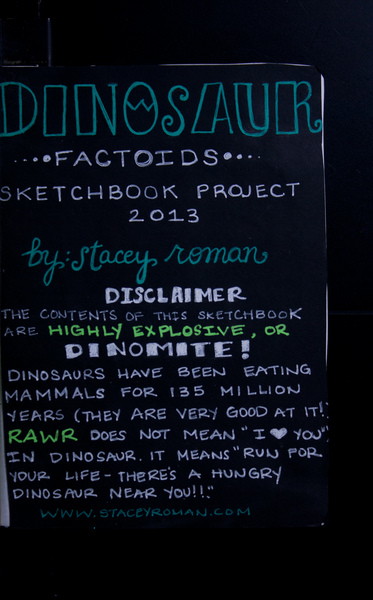 DINOSAUR
FACTOIDS
SKETCHBOOK PROJECT
2013
by: stacey roman
DISCLAIMER
THE CONTENTS OF THIS SKETCHBOOK
ARE HIGHLY EXPLOSIVE, OR
DINOMITE!
DINOSAURS HAVE BEEN EATING
MAMMALS FOR 135 MILLION
YEARS (THEY ARE VERY GOOD AT IT!)
RAWR DOES NOT MEAN "I ♥ YOU"
IN DINOSAUR. IT MEANS "RUN FOR
YOUR LIFE - THERE'S A HUNGRY
DINOSAUR NEAR YOU!!"
WWW.STACEYROMAN.COM